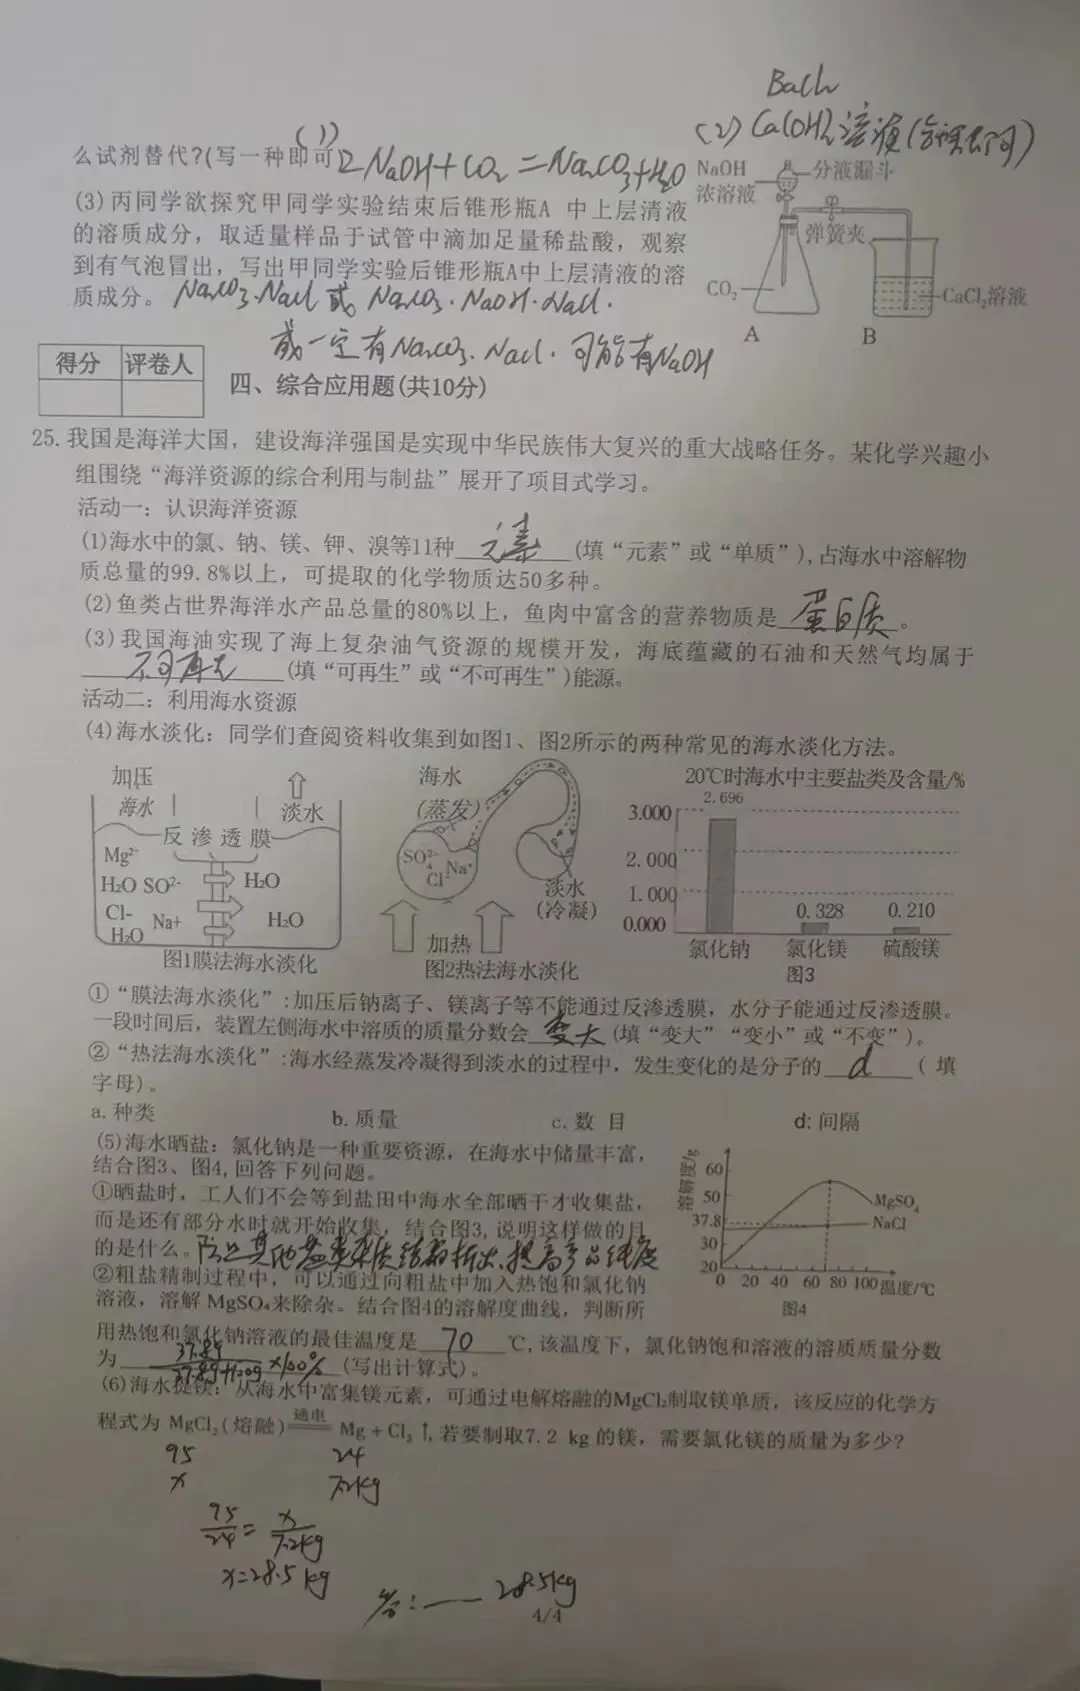 BaCl₂
(1)
(2) Ca(OH)₂溶液(合理即可)
么试剂替代?(写一种即可
2NaOH+CO₂=Na₂CO₃+H₂O
NaOH
浓溶液
分液漏斗
弹簧夹
CO₂
CaCl₂溶液
A
B
(3)丙同学欲探究甲同学实验结束后锥形瓶A 中上层清液
的溶质成分，取适量样品于试管中滴加足量稀盐酸，观察
到有气泡冒出，写出甲同学实验后锥形瓶A中上层清液的溶
质成分。 Na₂CO₃·NaCl 或 Na₂CO₃·NaOH·NaCl.
或一定有Na₂CO₃.NaCl.可能有NaOH
得分 评卷人
四、综合应用题(共10分)
25.我国是海洋大国，建设海洋强国是实现中华民族伟大复兴的重大战略任务。某化学兴趣小
组围绕“海洋资源的综合利用与制盐”展开了项目式学习。
活动一：认识海洋资源
(1)海水中的氯、钠、镁、钾、溴等11种 元素 (填“元素”或“单质”),占海水中溶解物
质总量的99.8%以上，可提取的化学物质达50多种。
(2)鱼类占世界海洋水产品总量的80%以上，鱼肉中富含的营养物质是 蛋白质 。
(3)我国海油实现了海上复杂油气资源的规模开发，海底蕴藏的石油和天然气均属于
不可再生 (填“可再生”或“不可再生”)能源。
活动二：利用海水资源
(4)海水淡化：同学们查阅资料收集到如图1、图2所示的两种常见的海水淡化方法。
加压
海水
淡水
反渗透膜
Mg²⁺
H₂O SO²⁻
H₂O
Cl-
Na+
H₂O
H₂O
图1膜法海水淡化
海水
(蒸发)
SO₄²⁻
Na⁺
Cl⁻
淡水
(冷凝)
加热
图2热法海水淡化
20℃时海水中主要盐类及含量/%
3.000
2.696
2.000
1.000
0.328
0.210
0.000
氯化钠 氯化镁 硫酸镁
图3
①“膜法海水淡化”:加压后钠离子、镁离子等不能通过反渗透膜，水分子能通过反渗透膜。
一段时间后，装置左侧海水中溶质的质量分数会 变大 (填“变大”“变小”或“不变”)。
②“热法海水淡化”:海水经蒸发冷凝得到淡水的过程中，发生变化的是分子的 d ( 填
字母)。
a.种类 b.质量 c.数 目 d:间隔
(5)海水晒盐：氯化钠是一种重要资源，在海水中储量丰富，
结合图3、图4,回答下列问题。
①晒盐时，工人们不会等到盐田中海水全部晒干才收集盐，
而是还有部分水时就开始收集，结合图3,说明这样做的目
的是什么。防止其他盐类杂质结晶析出,提高产品纯度
②粗盐精制过程中，可以通过向粗盐中加入热饱和氯化钠
溶液，溶解 MgSO₄来除杂。结合图4的溶解度曲线，判断所
溶解度/g
60
50
37.8
30
20
MgSO₄
NaCl
0 20 40 60 80 100 温度/℃
图4
用热饱和氯化钠溶液的最佳温度是 70 ℃,该温度下，氯化钠饱和溶液的溶质质量分数
37.8g
为 37.8g+100g ×100% (写出计算式)。
(6)海水提镁：从海水中富集镁元素，可通过电解熔融的MgCl₂制取镁单质，该反应的化学方
程式为 MgCl₂(熔融) 通电 Mg+Cl₂↑,若要制取7.2 kg 的镁，需要氯化镁的质量为多少?
95 24
x 7.2kg
95/24=x/7.2kg
x=28.5 kg
答:—— 28.5kg
4/4